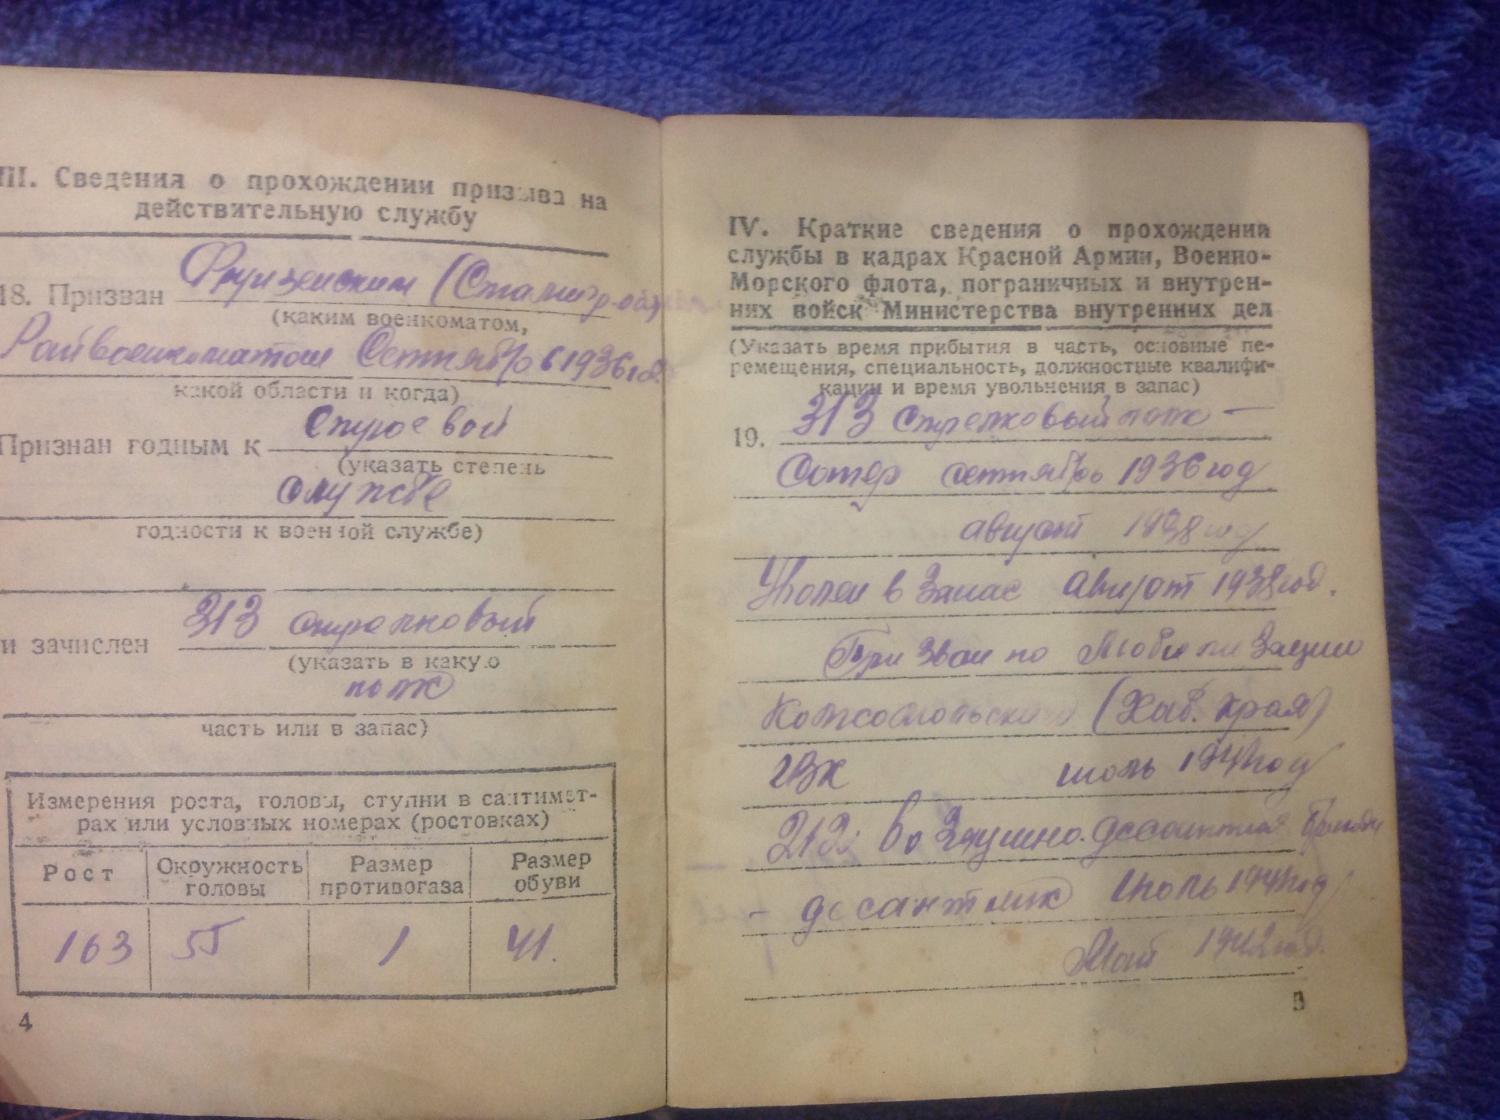 III. Сведения о прохождении призыва на
действительную службу
18. Призван Фрунзенским (Сталингр. обл)
(каким военкоматом,
Райвоенкоматом Сентябрь 1936 год
какой области и когда)
Признан годным к строевой
(указать степень
службе
годности к военной службе)
и зачислен 313 стрелковый
(указать в какую
полк
часть или в запас)
Измерения роста, головы, ступни в сантимет-
рах или условных номерах (ростовках)
Рост Окружность головы Размер противогаза Размер обуви
163 55 1 41.
4
IV. Краткие сведения о прохождении
службы в кадрах Красной Армии, Военно-
Морского флота, пограничных и внутрен-
них войск Министерства внутренних дел
(Указать время прибытия в часть, основные пе-
ремещения, специальность, должностные квалифи-
кации и время увольнения в запас)
19. 313 стрелковый полк –
сентябрь 1936 год
август 1938 год
Уволен в запас август 1938 год.
Призван по мобилизации
Комсомольским (Хаб. края)
ГВК июль 1941 году
212 воздушно-десантная бригады
– десантник июль 1941 год
Май 1942 год.
5